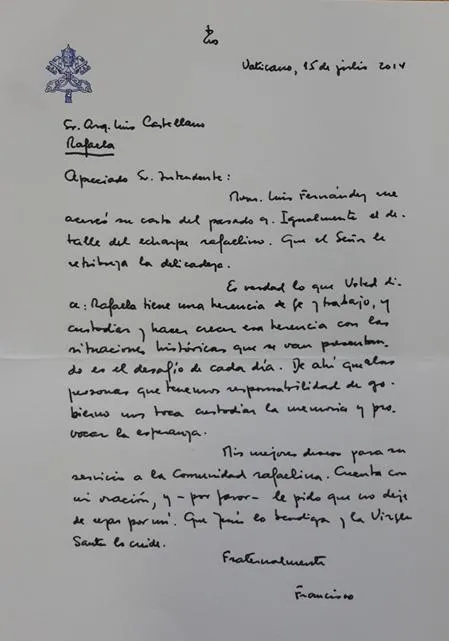 Vaticano, 15 de julio 2014
Sr. Arq. Luis Castellano
Rafaela
Apreciado Sr. Intendente:
Mons. Luis Fernández me
acercó su carta del pasado 9. Igualmente el de-
talle del echarpe rafaelino. Que el Señor le
retribuya la delicadeza.
Es verdad lo que Usted di-
ce: Rafaela tiene una herencia de fe y trabajo, y
custodiar y hacer crecer esa herencia con las
situaciones históricas que se van presentan-
do es el desafío de cada día. De ahí que a las
personas que tenemos responsabilidad de go-
bierno nos toca custodiar la memoria y pro-
vocar la esperanza.
Mis mejores deseos para su
servicio a la Comunidad rafaelina. Cuente con
mi oración, y - por favor - le pido que no deje
de rezar por mí. Que Jesús lo bendiga y la Virgen
Santa lo cuide.
Fraternalmente
Francisco